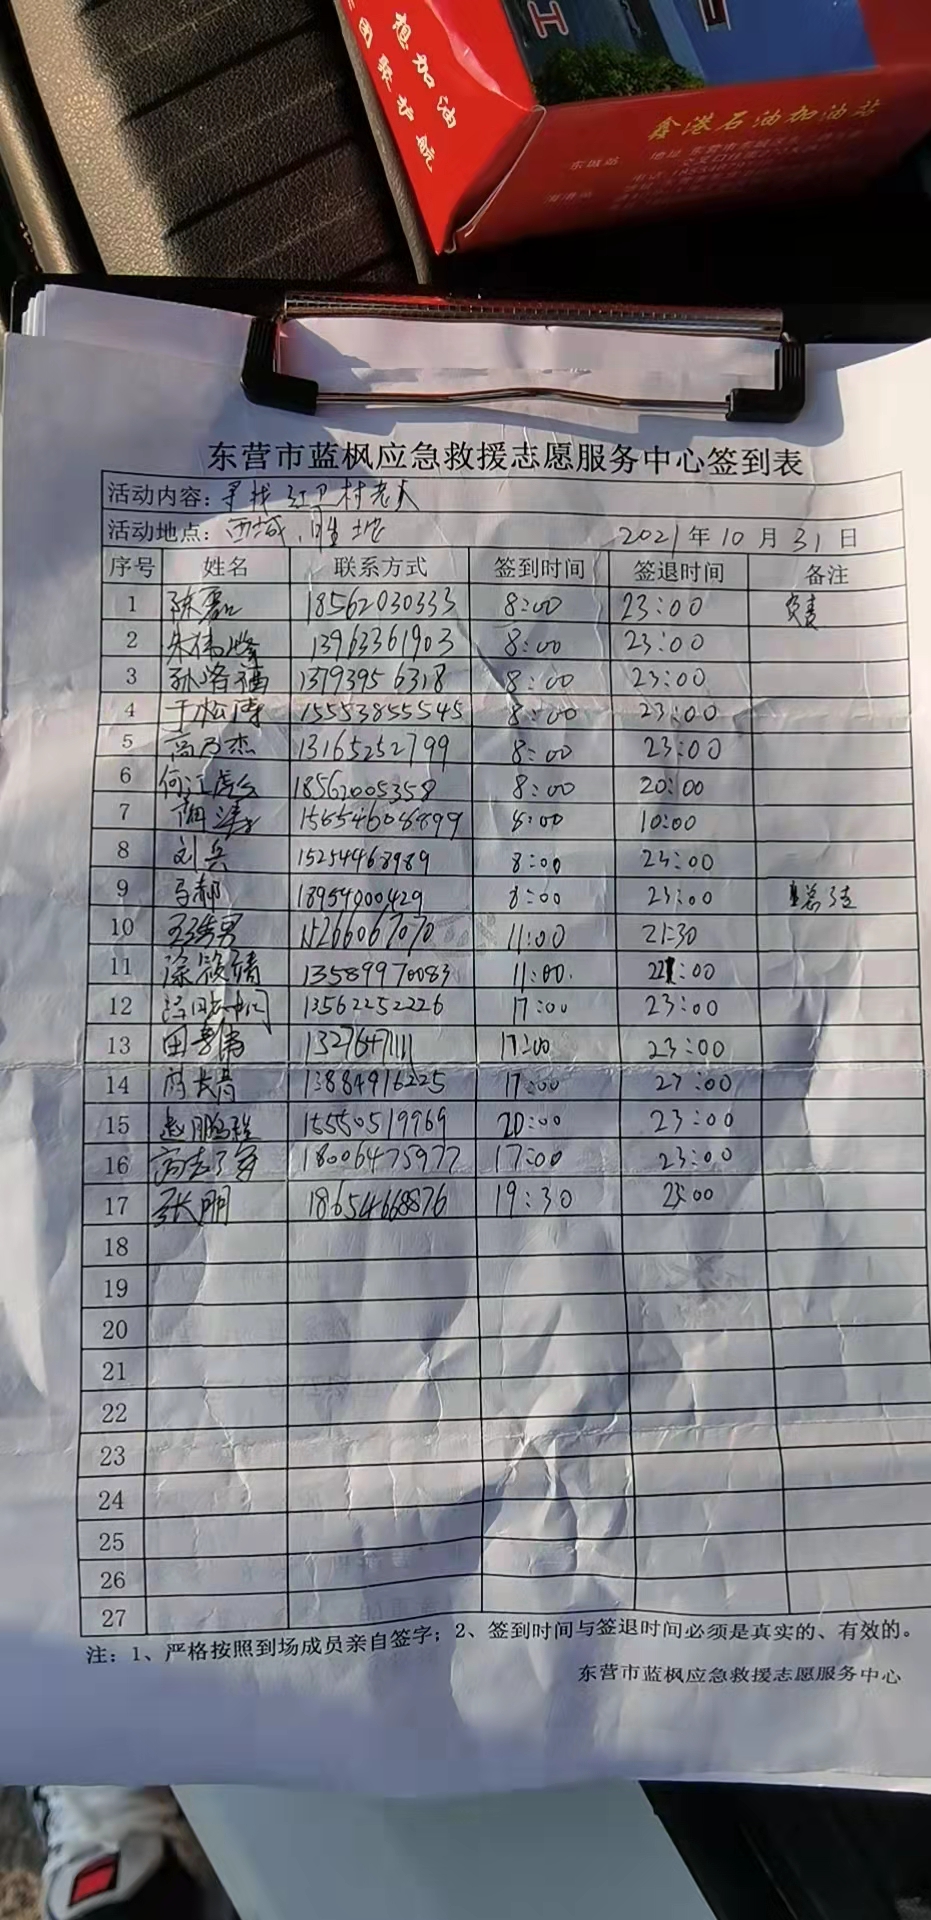 想加油
鑫港石油加油站
东城站
东营市蓝枫应急救援志愿服务中心签到表
活动内容：寻找红卫村老人
活动地点：西城、胜地 2021年10月31日
序号 姓名 联系方式 签到时间 签退时间 备注
1 陈磊 18562030333 8:00 23:00 负责
2 朱伟峰 13963361903 8:00 23:00
3 孙洛福 13793956318 8:00 23:00
4 于松涛 15553855545 8:00 23:00
5 高乃杰 13165252799 8:00 23:00
6 18562005358 8:00 20:00
7 8:00 10:00
8 刘兵 15254468989 8:00 23:00
9 马郝 18954000429 8:00 23:00
10 15266067070 11:00 21:30
11 涂筱靖 13589970083 11:00 :00
12 13562252226 17:00 23:00
13 田 13276471111 17:00 23:00
14 13884916225 17:00 23:00
15 赵鹏程 15550519969 20:00 23:00
16 18006475977 17:00 23:00
17 张朋 18654668876 19:30 23:00
18
19
20
21
22
23
24
25
26
27
注：1、严格按照到场成员亲自签字；2、签到时间与签退时间必须是真实的、有效的。
东营市蓝枫应急救援志愿服务中心